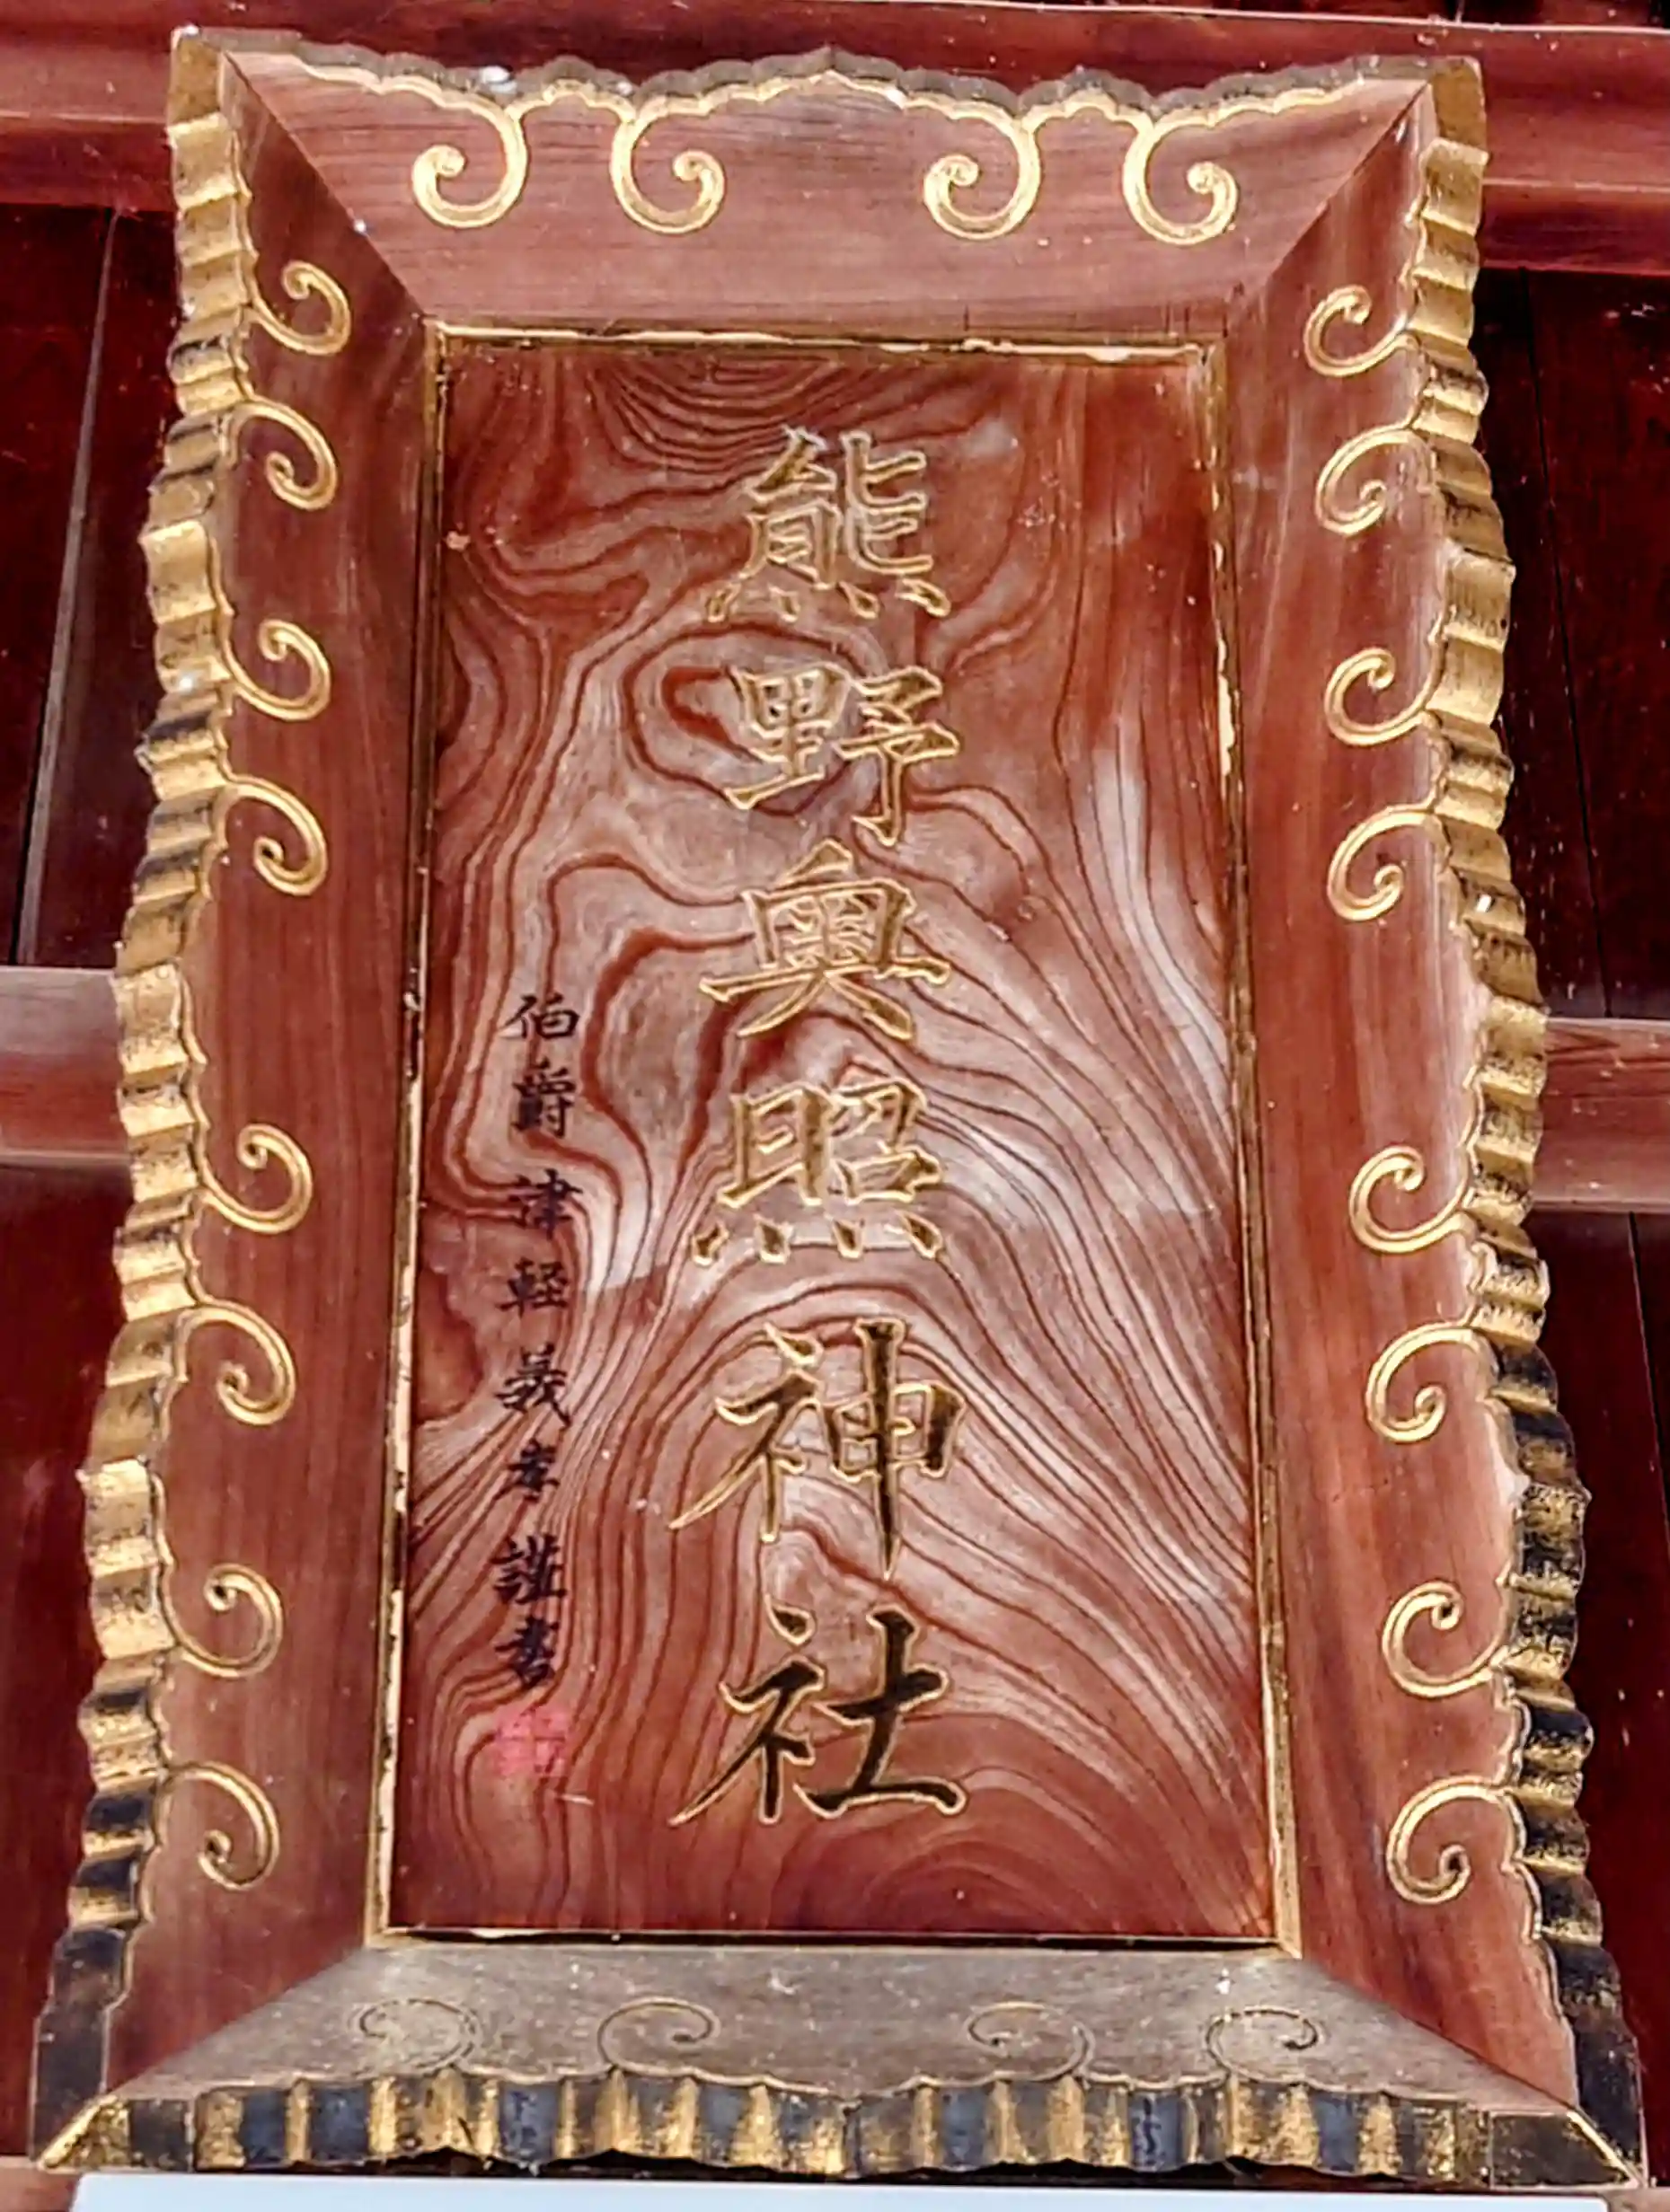 熊野奥照神社
伯爵 津軽義孝謹書